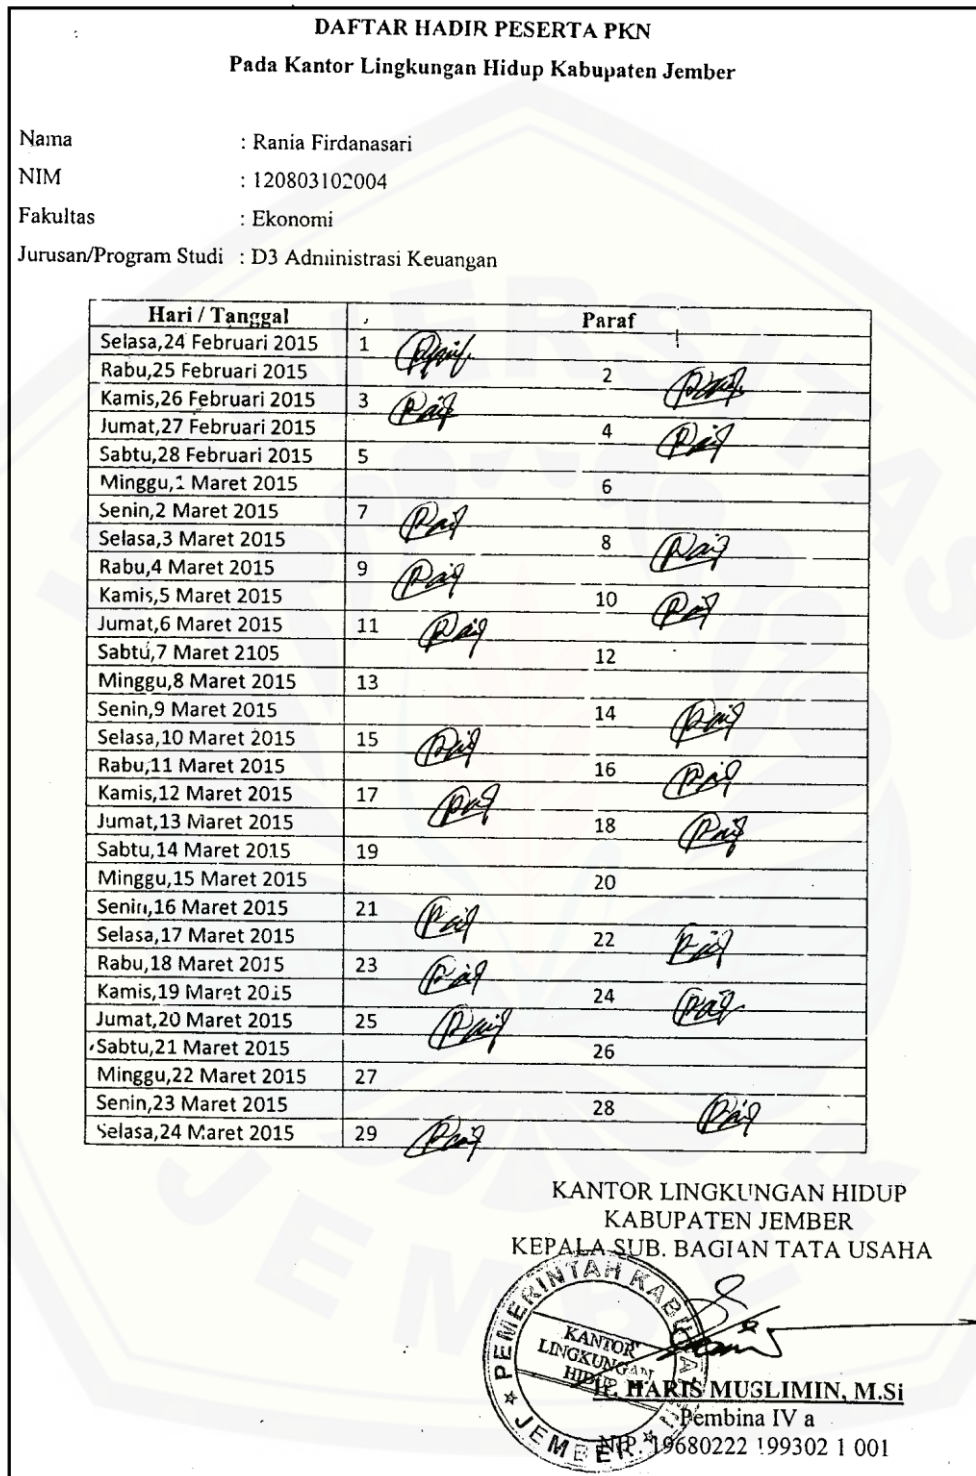 DAFTAR HADIR PESERTA PKN
Pada Kantor Lingkungan Hidup Kabupaten Jember
Nama : Rania Firdanasari
NIM : 120803102004
Fakultas : Ekonomi
Jurusan/Program Studi : D3 Administrasi Keuangan
Hari / Tanggal Paraf
Selasa,24 Februari 2015 1
Rabu,25 Februari 2015 2
Kamis,26 Februari 2015 3
Jumat,27 Februari 2015 4
Sabtu,28 Februari 2015 5
Minggu,1 Maret 2015 6
Senin,2 Maret 2015 7
Selasa,3 Maret 2015 8
Rabu,4 Maret 2015 9
Kamis,5 Maret 2015 10
Jumat,6 Maret 2015 11
Sabtu,7 Maret 2105 12
Minggu,8 Maret 2015 13
Senin,9 Maret 2015 14
Selasa,10 Maret 2015 15
Rabu,11 Maret 2015 16
Kamis,12 Maret 2015 17
Jumat,13 Maret 2015 18
Sabtu,14 Maret 2015 19
Minggu,15 Maret 2015 20
Senin,16 Maret 2015 21
Selasa,17 Maret 2015 22
Rabu,18 Maret 2015 23
Kamis,19 Maret 2015 24
Jumat,20 Maret 2015 25
Sabtu,21 Maret 2015 26
Minggu,22 Maret 2015 27
Senin,23 Maret 2015 28
Selasa,24 Maret 2015 29
KANTOR LINGKUNGAN HIDUP
KABUPATEN JEMBER
KEPALA SUB. BAGIAN TATA USAHA
PEMERINTAH KABUPATEN
KANTOR
LINGKUNGAN
HIDUP
JEMBER
Ir. HARIS MUSLIMIN, M.Si
Pembina IV a
NIP. 19680222 199302 1 001